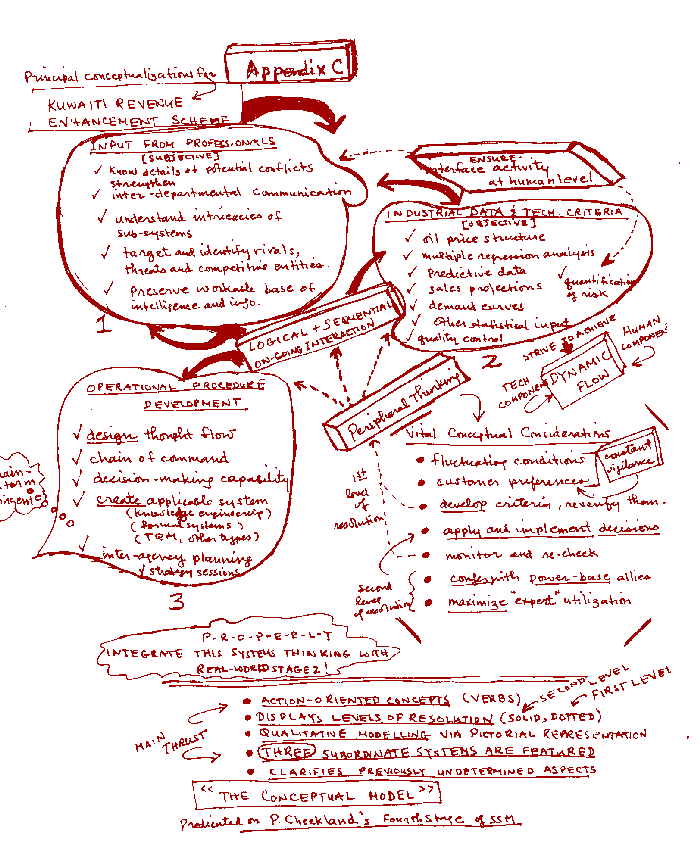 Appendix C
Principal conceptualizations for
KUWAITI REVENUE
ENHANCEMENT SCHEME
INPUT FROM PROFESSIONALS
[SUBJECTIVE]
✓ Know details of potential conflicts
strengthen
✓ inter-departmental communication
✓ understand intricacies of
sub-systems
✓ target and identify rivals,
threats and competitive entities.
✓ Preserve workable base of
intelligence and info.
1
ENSURE
interface activity
at human level
INDUSTRIAL DATA & TECH. CRITERIA
[OBJECTIVE]
✓ oil price structure
✓ multiple regression analysis
✓ Predictive data
✓ sales projections
✓ demand curves
✓ other statistical input
✓ quality control
✓ quantification
of risk
2
LOGICAL + SEQUENTIAL
ON-GOING INTERACTION
Peripheral Thinking
STRIVE TO ACHIEVE
HUMAN
COMPONENT
TECH
COMPONENT
DYNAMIC
FLOW
OPERATIONAL PROCEDURE
DEVELOPMENT
✓ design thought flow
✓ chain of command
✓ decision-making capability
✓ create applicable system
(knowledge engineering)
(formal systems)
(TQM, other types)
✓ inter-agency planning
✓ strategy sessions
3
Vital Conceptual Considerations
• fluctuating conditions
• customer preferences
constant
vigilance
• develop criteria, reverify them.
• apply and implement decisions
• monitor and re-check
• confer with power-base allies
• maximize "expert" utilization
1st
level
of
resolution
second
level
of resolution
INTEGRATE THIS SYSTEMS THINKING WITH
REAL-WORLD STAGE 2!
MAIN
THRUST
• ACTION-ORIENTED CONCEPTS (VERBS)
SECOND LEVEL
FIRST LEVEL
• DISPLAYS LEVELS OF RESOLUTION (SOLID, DOTTED)
• QUALITATIVE MODELLING VIA PICTORIAL REPRESENTATION
• THREE SUBORDINATE SYSTEMS ARE FEATURED
• CLARIFIES PREVIOUSLY UNDETERMINED ASPECTS
"THE CONCEPTUAL MODEL"
Predicated on P. Checkland's Fourth Stage of SSM